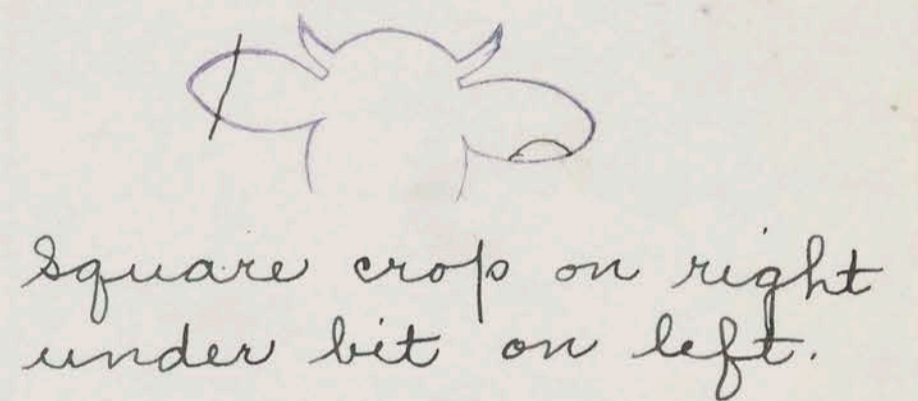 Square crop on right
under bit on left.